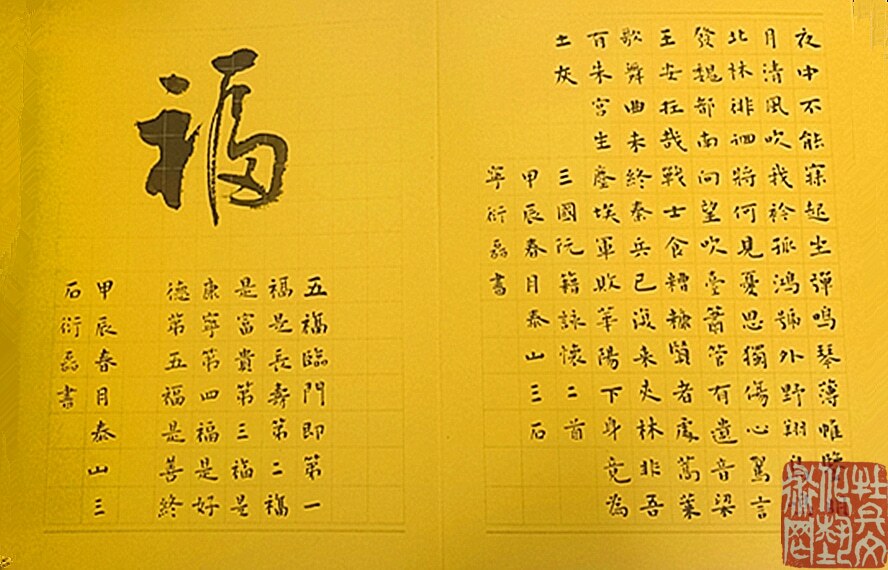 夜中不能寐起坐彈鳴琴薄帷鑒
月清風吹我衿孤鴻號外野翔
北林徘徊將何見憂思獨傷心駕言
發魏都南向望吹臺簫管有遺音梁
王安在哉戰士食糟糠賢者處蒿萊
歌舞曲未終秦兵已復來夾林非吾
有朱宮生塵埃軍敗華陽下身竟為
土灰 三國阮籍詠懷二首
甲辰春月泰山三石
寧衍磊書
福
五福臨門即第一
福是長壽第二福
是富貴第三福是
康寧第四福是好
德第五福是善終
甲辰春月泰山三
石衍磊書